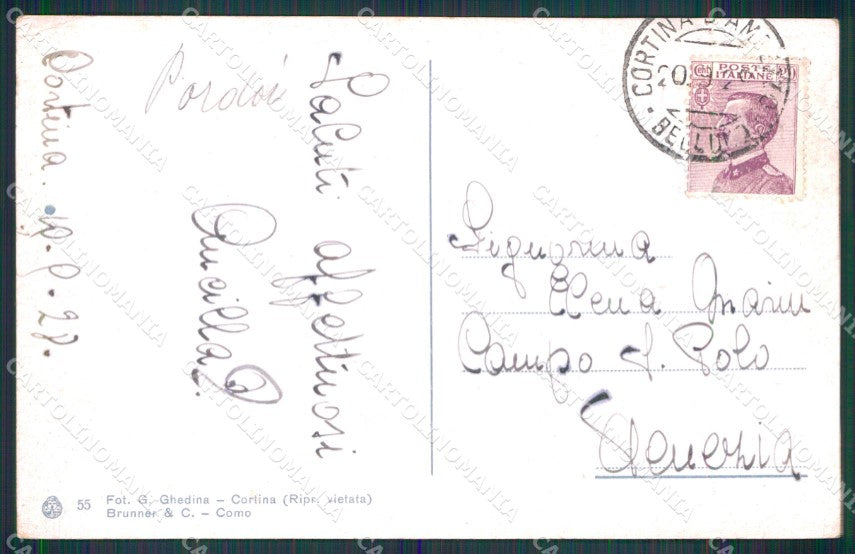 Cortina
Pordoi
Saluti affettuosi
CORTINA D'AM
BELLU
POSTE
ITALIANE
Signorina
Elena Marin
Campo S. Polo
Venezia
55 Fot. G. Ghedina – Cortina (Ripr. vietata)
Brunner & C. – Como
CARTOLINOMANIA